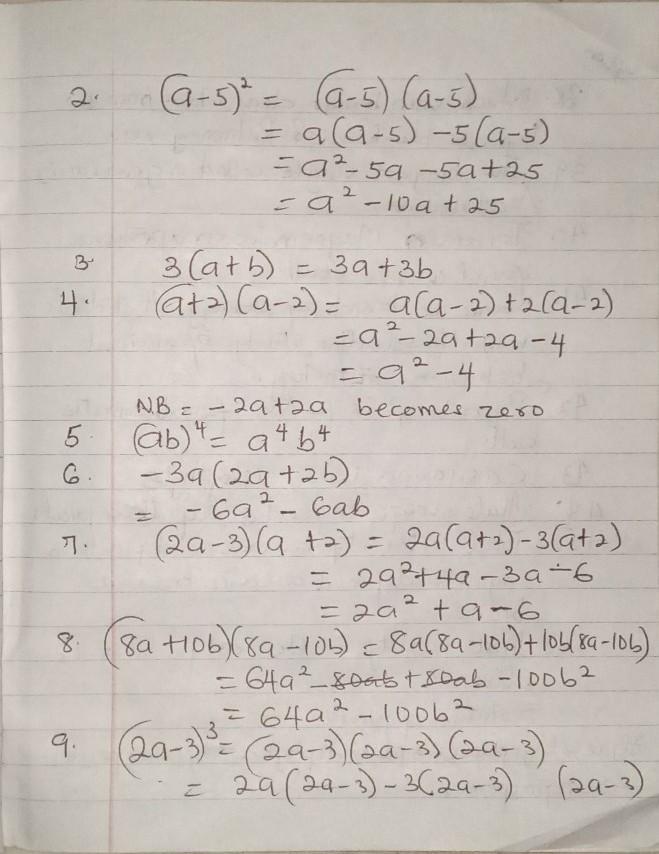 2. (a-5)² = (a-5)(a-5)
= a(a-5) -5(a-5)
= a² - 5a - 5a + 25
= a² - 10a + 25
3. 3(a+b) = 3a+3b
4. (a+2)(a-2) = a(a-2)+2(a-2)
= a² - 2a + 2a - 4
= a² - 4
N.B = - 2a + 2a becomes zero
5. (ab)⁴ = a⁴b⁴
6. -3a(2a+2b)
= - 6a² - 6ab
7. (2a-3)(a+2) = 2a(a+2)-3(a+2)
= 2a²+4a-3a-6
= 2a² + a - 6
8. (8a+10b)(8a-10b) = 8a(8a-10b)+10b(8a-10b)
= 64a² - 80ab + 80ab - 100b²
= 64a² - 100b²
9. (2a-3)³ = (2a-3)(2a-3)(2a-3)
= 2a(2a-3)-3(2a-3) (2a-3)